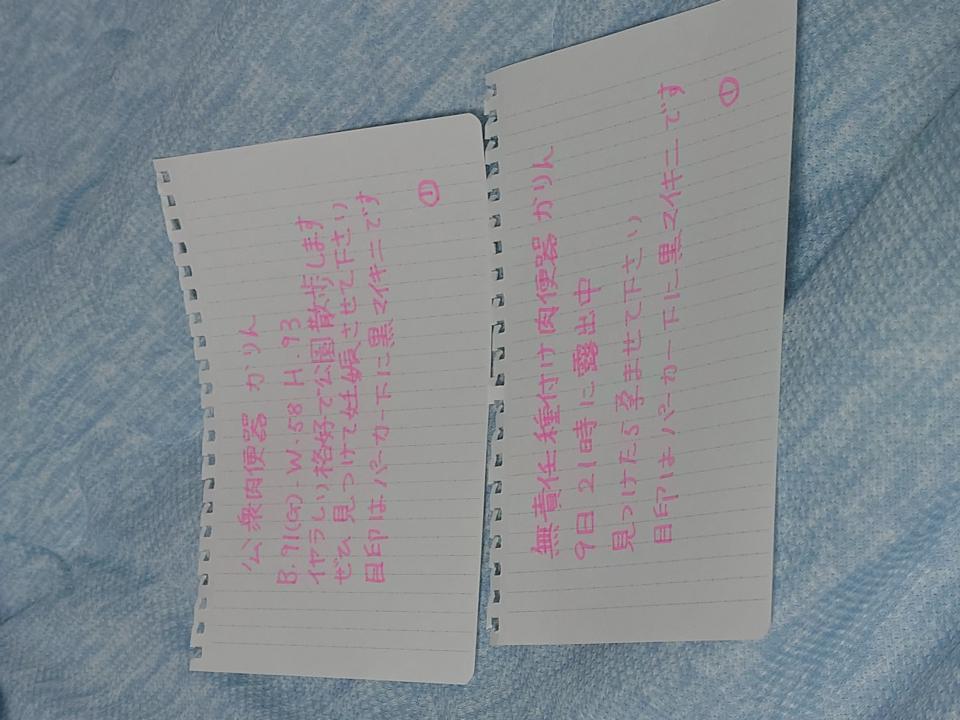 公衆肉便器 かりん
B.91(G)-W.58 H.93
イヤラしい格好で公園散歩します
ぜひ見つけて妊娠させて下さい
目印はパーカー下に黒マイキニです
①
無責任種付け肉便器 かりん
9日21時に露出中
見つけたら孕ませて下さい
目印はパーカー下に黒マイキニです
①